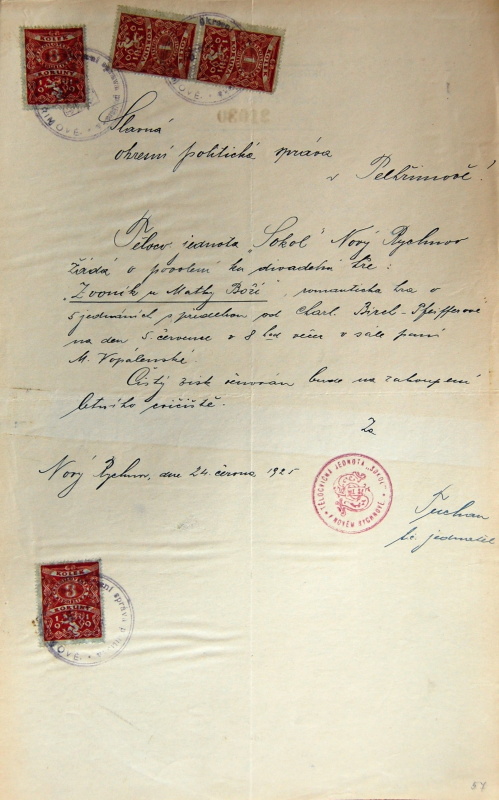 KOLEK
KORUNY
1
1
31080
Slavná
okresní politická správa
v Pelhřimově!
Těloc. jednota „Sokol" Nový Rychnov
žádá o povolení ku divadelní hře:
„Zvoník u Matky Boží", romantická hra o
5 jednáních s předehrou od Charl. Birch-Pfeifferové
na den 5. července v 8 hod večer v sále paní
M. Vopálenské.
Čistý zisk věnován bude na zakoupení
letního cvičiště.
Za
Nový Rychnov, dne 24. června 1925
TĚLOCVIČNÁ JEDNOTA „SOKOL"
V NOVÉM RYCHNOVĚ
t.č. jednatel
KOLEK
3
KORUNY
57